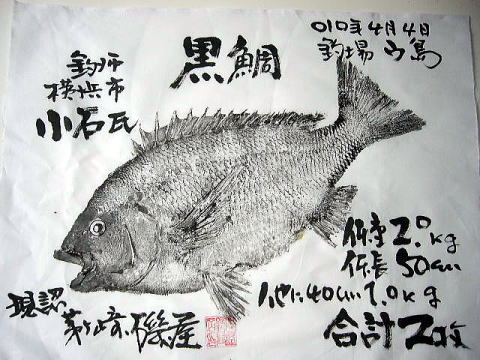 黒鯛
010年4月4日
釣場 ウ島
釣師
横浜市
小石氏
体重2.0kg
体長50cm
他に40cm1.0kg
合計2枚
現認
茅ヶ崎磯屋